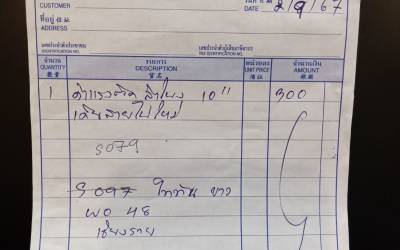 CUSTOMER
DATE 2/9/67
ที่อยู่
ADDRESS
เลขประจำตัวประชาชน
IDENTIFICATION NO.
เลขประจำตัวผู้เสียภาษีอากร
TAX IDENTIFICATION NO.
จำนวน รายการ หน่วยละ จำนวนเงิน
QUANTITY DESCRIPTION UNIT PRICE AMOUNT
數量 貨名
1 ค่าแรงติด ลำโพง 10" 300
เดินสายไฟใหม่
8079
ไททัน ขาว
พอ 48
เชียงราย